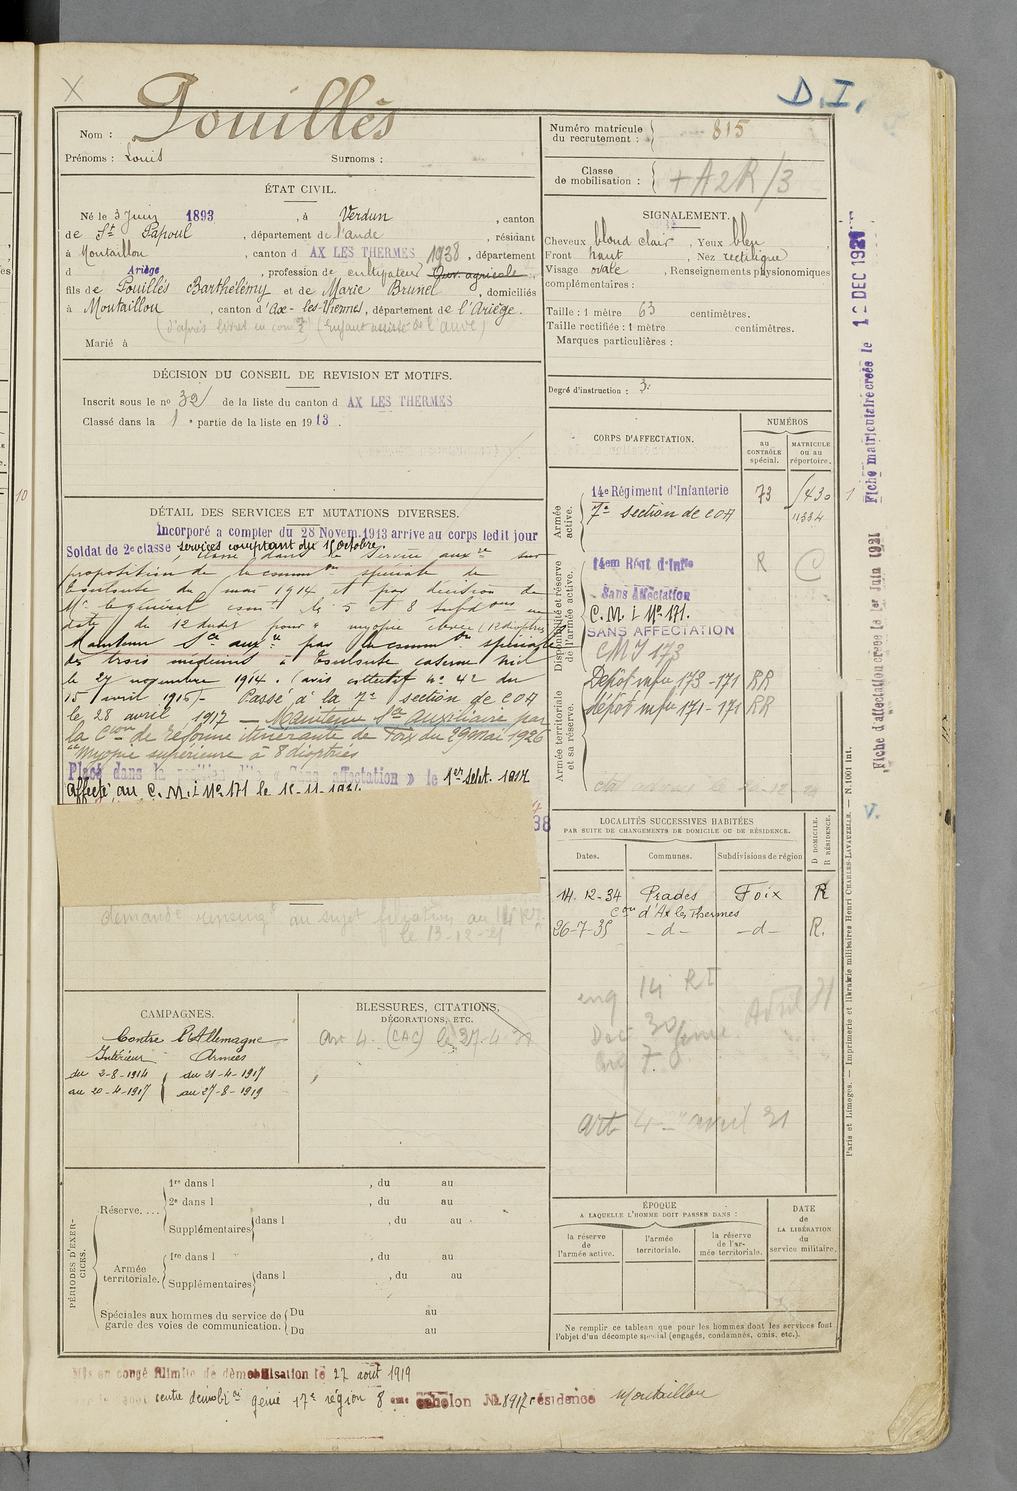 X
D.I.
Nom : Pouillès
Prénoms : Louis Surnoms :
Numéro matricule du recrutement : 815
Classe de mobilisation : + A 2 R/3
ÉTAT CIVIL.
Né le 3 Juin 1893, à Verdun, canton
de St Papoul, département de l'aude, résidant
à Montaillou, canton d AX LES THERMES 1938, département
d Ariège, profession de cultivateur Ouv. agricole
fils de Pouillès Barthélémy et de Marie Brunel, domiciliés
à Montaillou, canton d'Ax-les-Thermes, département de l'Ariège.
(d'après livret en (Enfant assisté de l'aude)
Marié à
SIGNALEMENT.
Cheveux blond clair, Yeux bleu
Front haut, Nez rectiligne
Visage ovale, Renseignements physionomiques
complémentaires :
Taille : 1 mètre 63 centimètres.
Taille rectifiée : 1 mètre centimètres.
Marques particulières :
Degré d'instruction : 3.
DÉCISION DU CONSEIL DE REVISION ET MOTIFS.
Inscrit sous le no 32 de la liste du canton d AX LES THERMES
Classé dans la 1e partie de la liste en 1913.
10
DÉTAIL DES SERVICES ET MUTATIONS DIVERSES.
Incorporé a compter du 28 Novem. 1913 arrive au corps ledit jour
Soldat de 2e classe services comptant du 1 Octobre.
Classé dans le service auxre sur
proposition de la common spéciale de
Toulouse du mai 1914 et par décision de
Mr le général comt les 5 et 8 subdons en
date du 12 dudit pour " myopie élevée (12 dioptries
Maintenu Sce auxre par la common spéciale
des trois médecins à Toulouse caserne Niel
le 27 novembre 1914. (avis collectif no 42 du
15 avril 1915) - Passé à la 7e section de COA
le 28 avril 1917 — Maintenu Sce Auxiliaire par
la Cion de réforme itinérante de Foix du 29 mai 1926
"Myopie supérieure à 8 dioptries
Placé dans la position dite « Sans affectation » le 1er Sept. 1927
Affecté au C.M.I No 171 le 15-11-1931.
38
au sujet au 14e RI
le 13-12-21
CORPS D'AFFECTATION.
NUMÉROS
au CONTRÔLE spécial.
MATRICULE ou au répertoire.
Armée active.
14e Régiment d'Infanterie 73 5430
7e section de COA 11334
Disponibilité et réserve de l'armée active.
14em Régt d'Infie R C
Sans Affectation
C.M.I No 171.
SANS AFFECTATION
CMI 173
Armée territoriale et sa réserve.
Dépôt infie 173-171 RR
dépôt infie 171-171 RR
LOCALITÉS SUCCESSIVES HABITÉES
PAR SUITE DE CHANGEMENTS DE DOMICILE OU DE RÉSIDENCE.
Dates. Communes. Subdivisions de région
D DOMICILE. R RÉSIDENCE.
14.12-34 Prades Foix R
Con d'Ax les Thermes
26-7-35 -d- -d- R.
14 RI
Art 4 avril 31
CAMPAGNES.
Contre l'Allemagne
Intérieur Armées
du 2-8-1914 du 21-4-1917
au 20-4-1917 au 27-8-1919
BLESSURES, CITATIONS,
DÉCORATIONS, ETC.
Art 4. (CAC) le 27-4-31
PÉRIODES D'EXERCICES.
Réserve....
1re dans l , du au
2e dans l , du au
Supplémentaires dans l , du au
Armée territoriale.
1re dans l , du au
Supplémentaires dans l , du au
Spéciales aux hommes du service de garde des voies de communication.
Du au
Du au
ÉPOQUE
A LAQUELLE L'HOMME DOIT PASSER DANS :
la réserve de l'armée active.
l'armée territoriale.
la réserve de l'armée territoriale.
DATE de LA LIBÉRATION du service militaire.
Ne remplir ce tableau que pour les hommes dont les services font
l'objet d'un décompte spécial (engagés, condamnés, omis, etc.).
Mis en congé illimité de démobilisation le 27 août 1919
centre démobon génie 17e région 8eme échelon No 8917 résidence Montaillou
Fiche matriculaire créée le 12 DEC 1921
Fiche d'affectation créée le 1er Juin 1921
V.
Paris et Limoges. — Imprimerie et librairie militaires Henri CHARLES-LAVAUZELLE. — N. 1001 int.